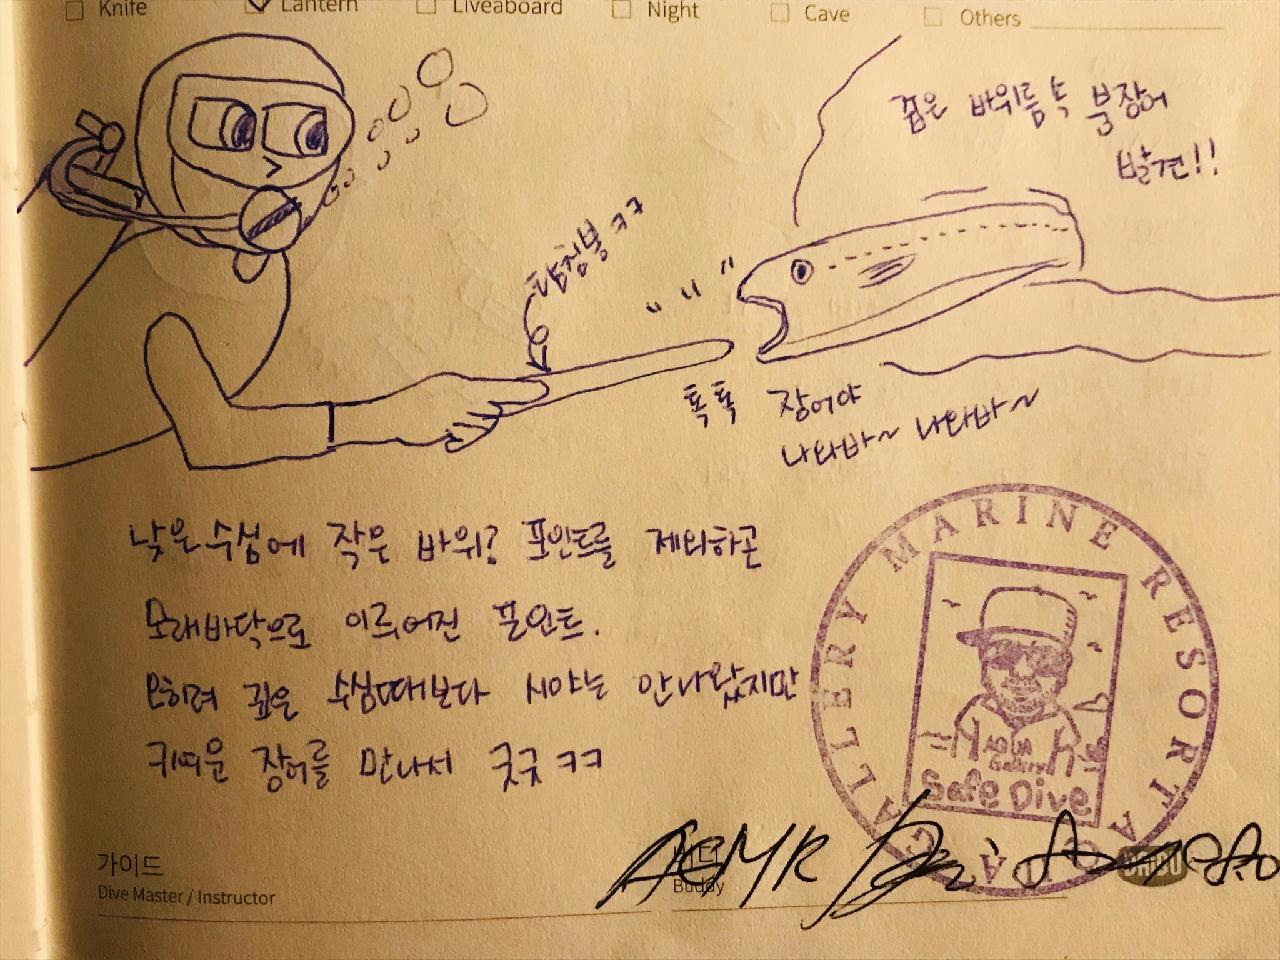 Knife Lantern Liveaboard Night Cave Others
좁은 바위틈속 붕장어
발견!!
탐침봉 ㅋㅋ
톡톡 장어야
나와바~ 나와바~
낮은 수심에 작은 바위? 포인트를 제외하곤
모래바닥으로 이루어진 포인트.
오히려 깊은 수심때보다 시야는 안나왔지만
귀여운 장어를 만나서 굿굿 ㅋㅋ
AQUA GALLERY MARINE RESORT
AQUA
Gallery
Safe Dive
가이드
Dive Master / Instructor
버디
Buddy